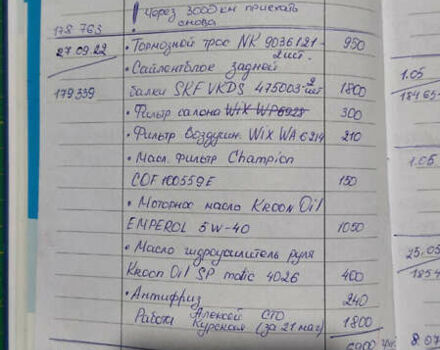 Через 3000 км приехать
178 763 снова
27.09.22 • Тормозной трос NK 9036121- 950
2шт.
• Сайлентблок задней
179339 балки SKF VKDS 475003-2шт 1800
• Фильтр салона WIX WP6928 300
• Фильтр воздушн. WIX WA 6214 210
• Масл. фильтр Champion
COF100559E 150
• Моторное масло KROON Oil
EMPEROL 5W-40 1050
• Масло гидроусилитель руля
Kroon Oil SP matic 4026 400
• Антифриз 240
Работа Алексей СТО
Курская (за 21 маг) 1800
6900
1.05
1.05
25.05
1854
8.07